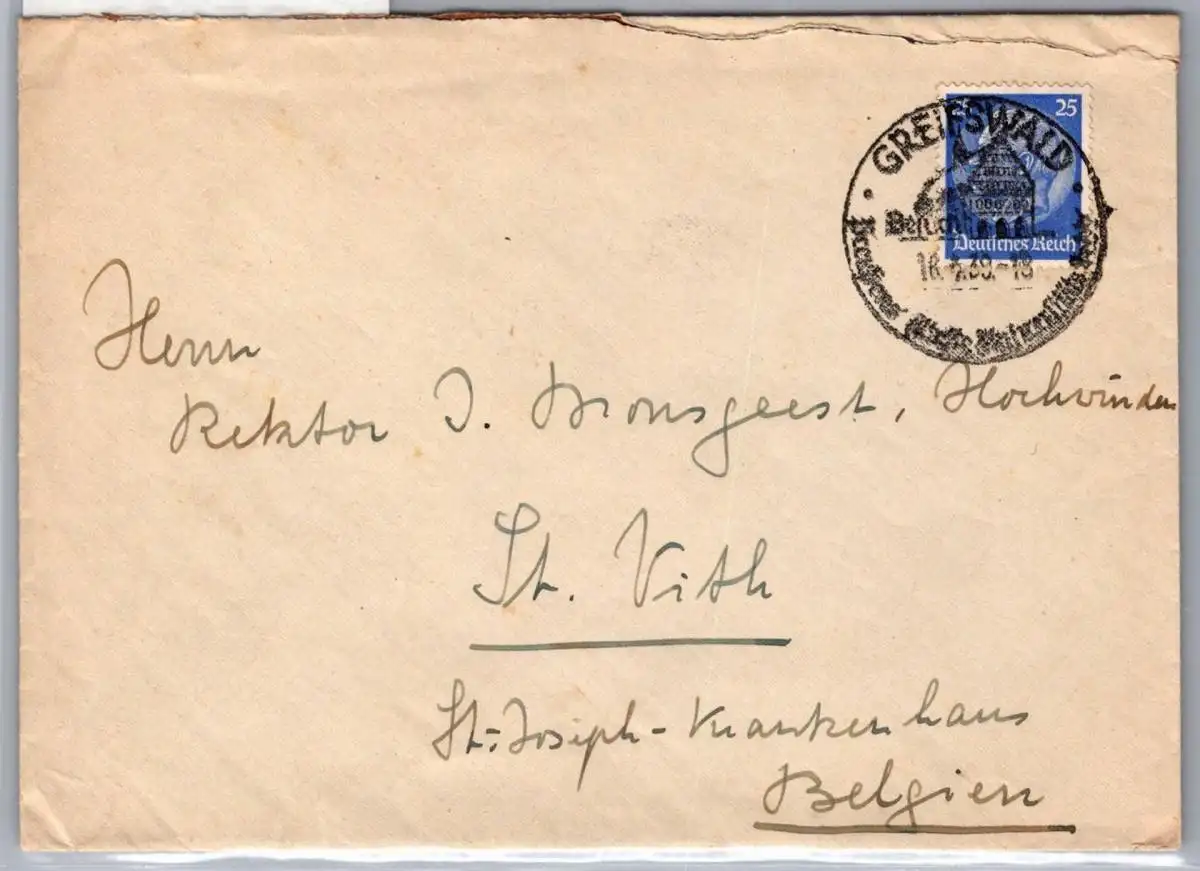 25 25
GREIFSWALD
Besucht
Deutsches Reich
39.-18
Herrn
Rektor J. Bronsgeest, Hochwürden
St. Vith
St.-Joseph-Krankenhaus
Belgien